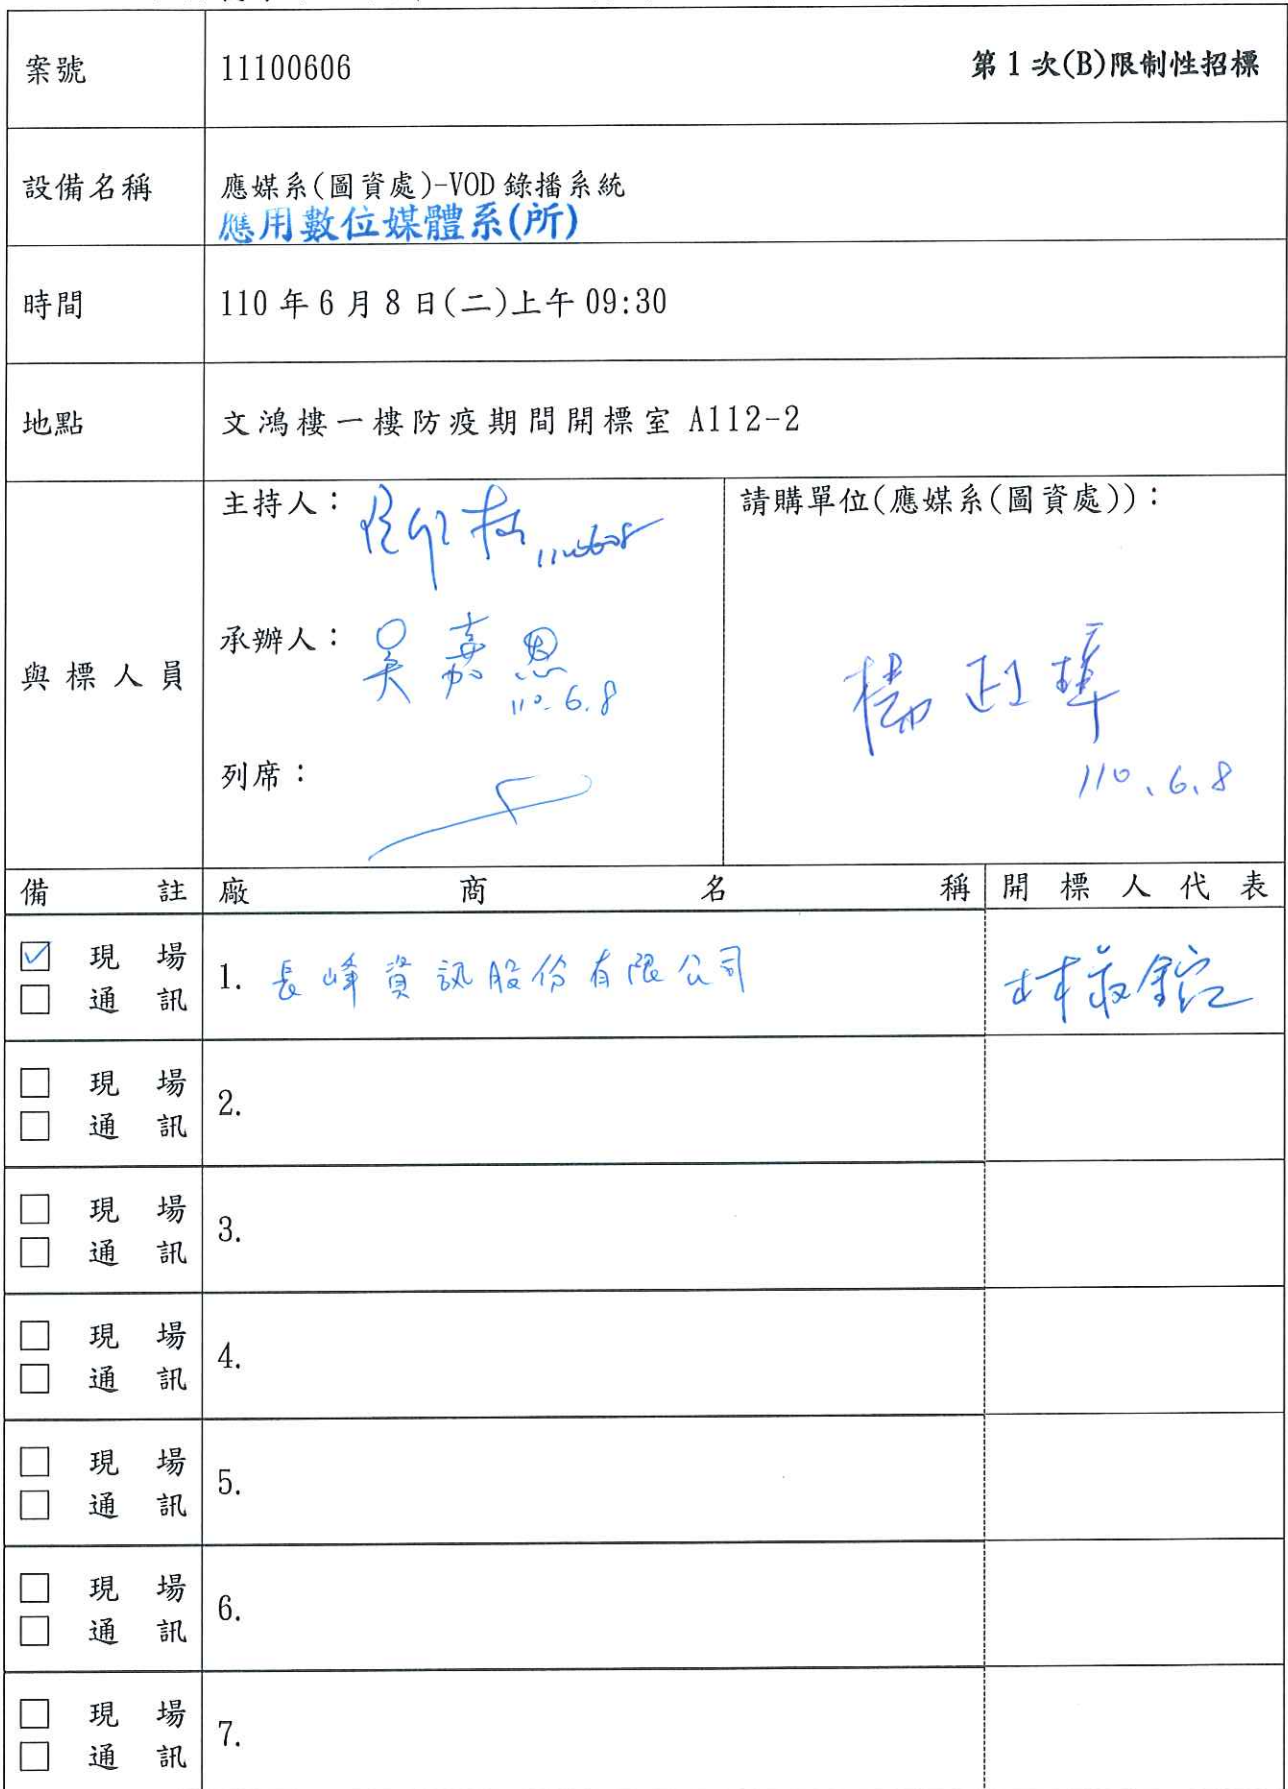 案號 11100606 第1次(B)限制性招標
設備名稱 應媒系(圖資處)-VOD錄播系統
應用數位媒體系(所)
時間 110年6月8日(二)上午09:30
地點 文鴻樓一樓防疫期間開標室 A112-2
與標人員
主持人：
請購單位(應媒系(圖資處))：
承辦人：吳嘉恩
110.6.8
110.6.8
列席：
備註 廠商名稱 開標人代表
☑ 現場
☐ 通訊
1. 長峰資訊股份有限公司
☐ 現場
☐ 通訊
2.
☐ 現場
☐ 通訊
3.
☐ 現場
☐ 通訊
4.
☐ 現場
☐ 通訊
5.
☐ 現場
☐ 通訊
6.
☐ 現場
☐ 通訊
7.